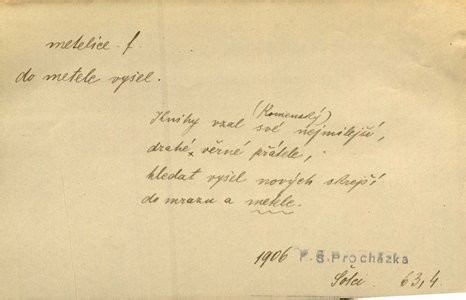 metelice f.
do metele vyšel.
(Komenský)
Knihy vzal své nejmilejší,
drahé, věrné přátele,
hledat vyšel nových skrejší
do mrazu a metele.
1906 F. S. Procházka
63,4